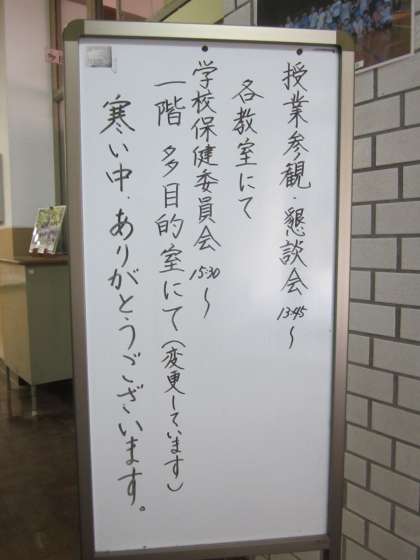 授業参観・懇談会 13:45～
各教室にて
学校保健委員会 15:30～
一階 多目的室にて(変更しています)
寒い中、ありがとうございます。